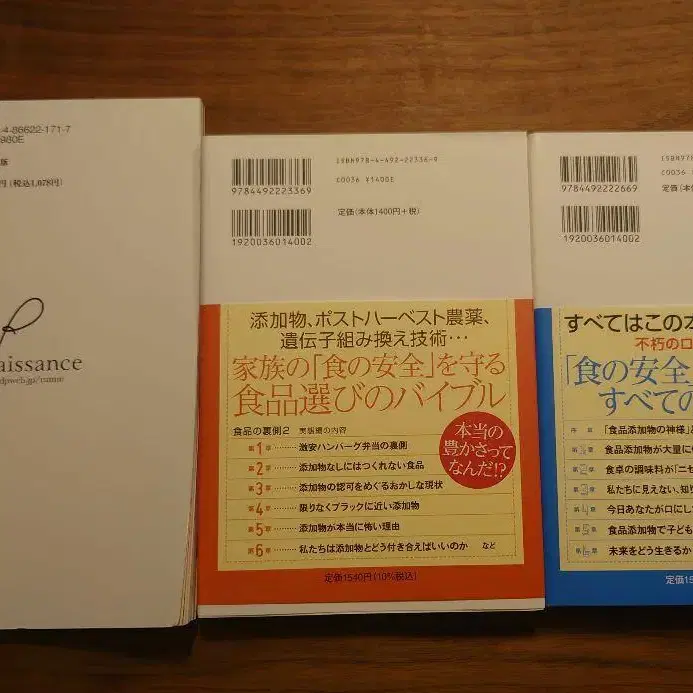 4-86622-171-7
980E
版
円(税込1,078円)
R
aissance
dpweb.jp/runne
ISBN978-4-492-22336-9
C0036 ¥1400E
9784492223369
定価(本体1400円+税)
1920036014002
添加物、ポストハーベスト農薬、
遺伝子組み換え技術…
家族の「食の安全」を守る
食品選びのバイブル
食品の裏側2 実態編の内容
本当の
豊かさって
なんだ!?
第1章………激安ハンバーグ弁当の裏側
第2章………添加物なしにはつくれない食品
第3章………添加物の認可をめぐるおかしな現状
第4章………限りなくブラックに近い添加物
第5章………添加物が本当に怖い理由
第6章………私たちは添加物とどう付き合えばいいのか など
定価1540円(10%税込)
ISBN978
C0036
9784492222669
定価(本
1920036014002
すべてはこの本
不朽のロ
「食の安全
すべての
序章 「食品添加物の神様」と
第1章 食品添加物が大量に
第2章 食卓の調味料が「ニセ
第3章 私たちに見えない、知り
第4章 今日あなたが口にし
第5章 食品添加物で子ども
第6章 未来をどう生きるか
定価15